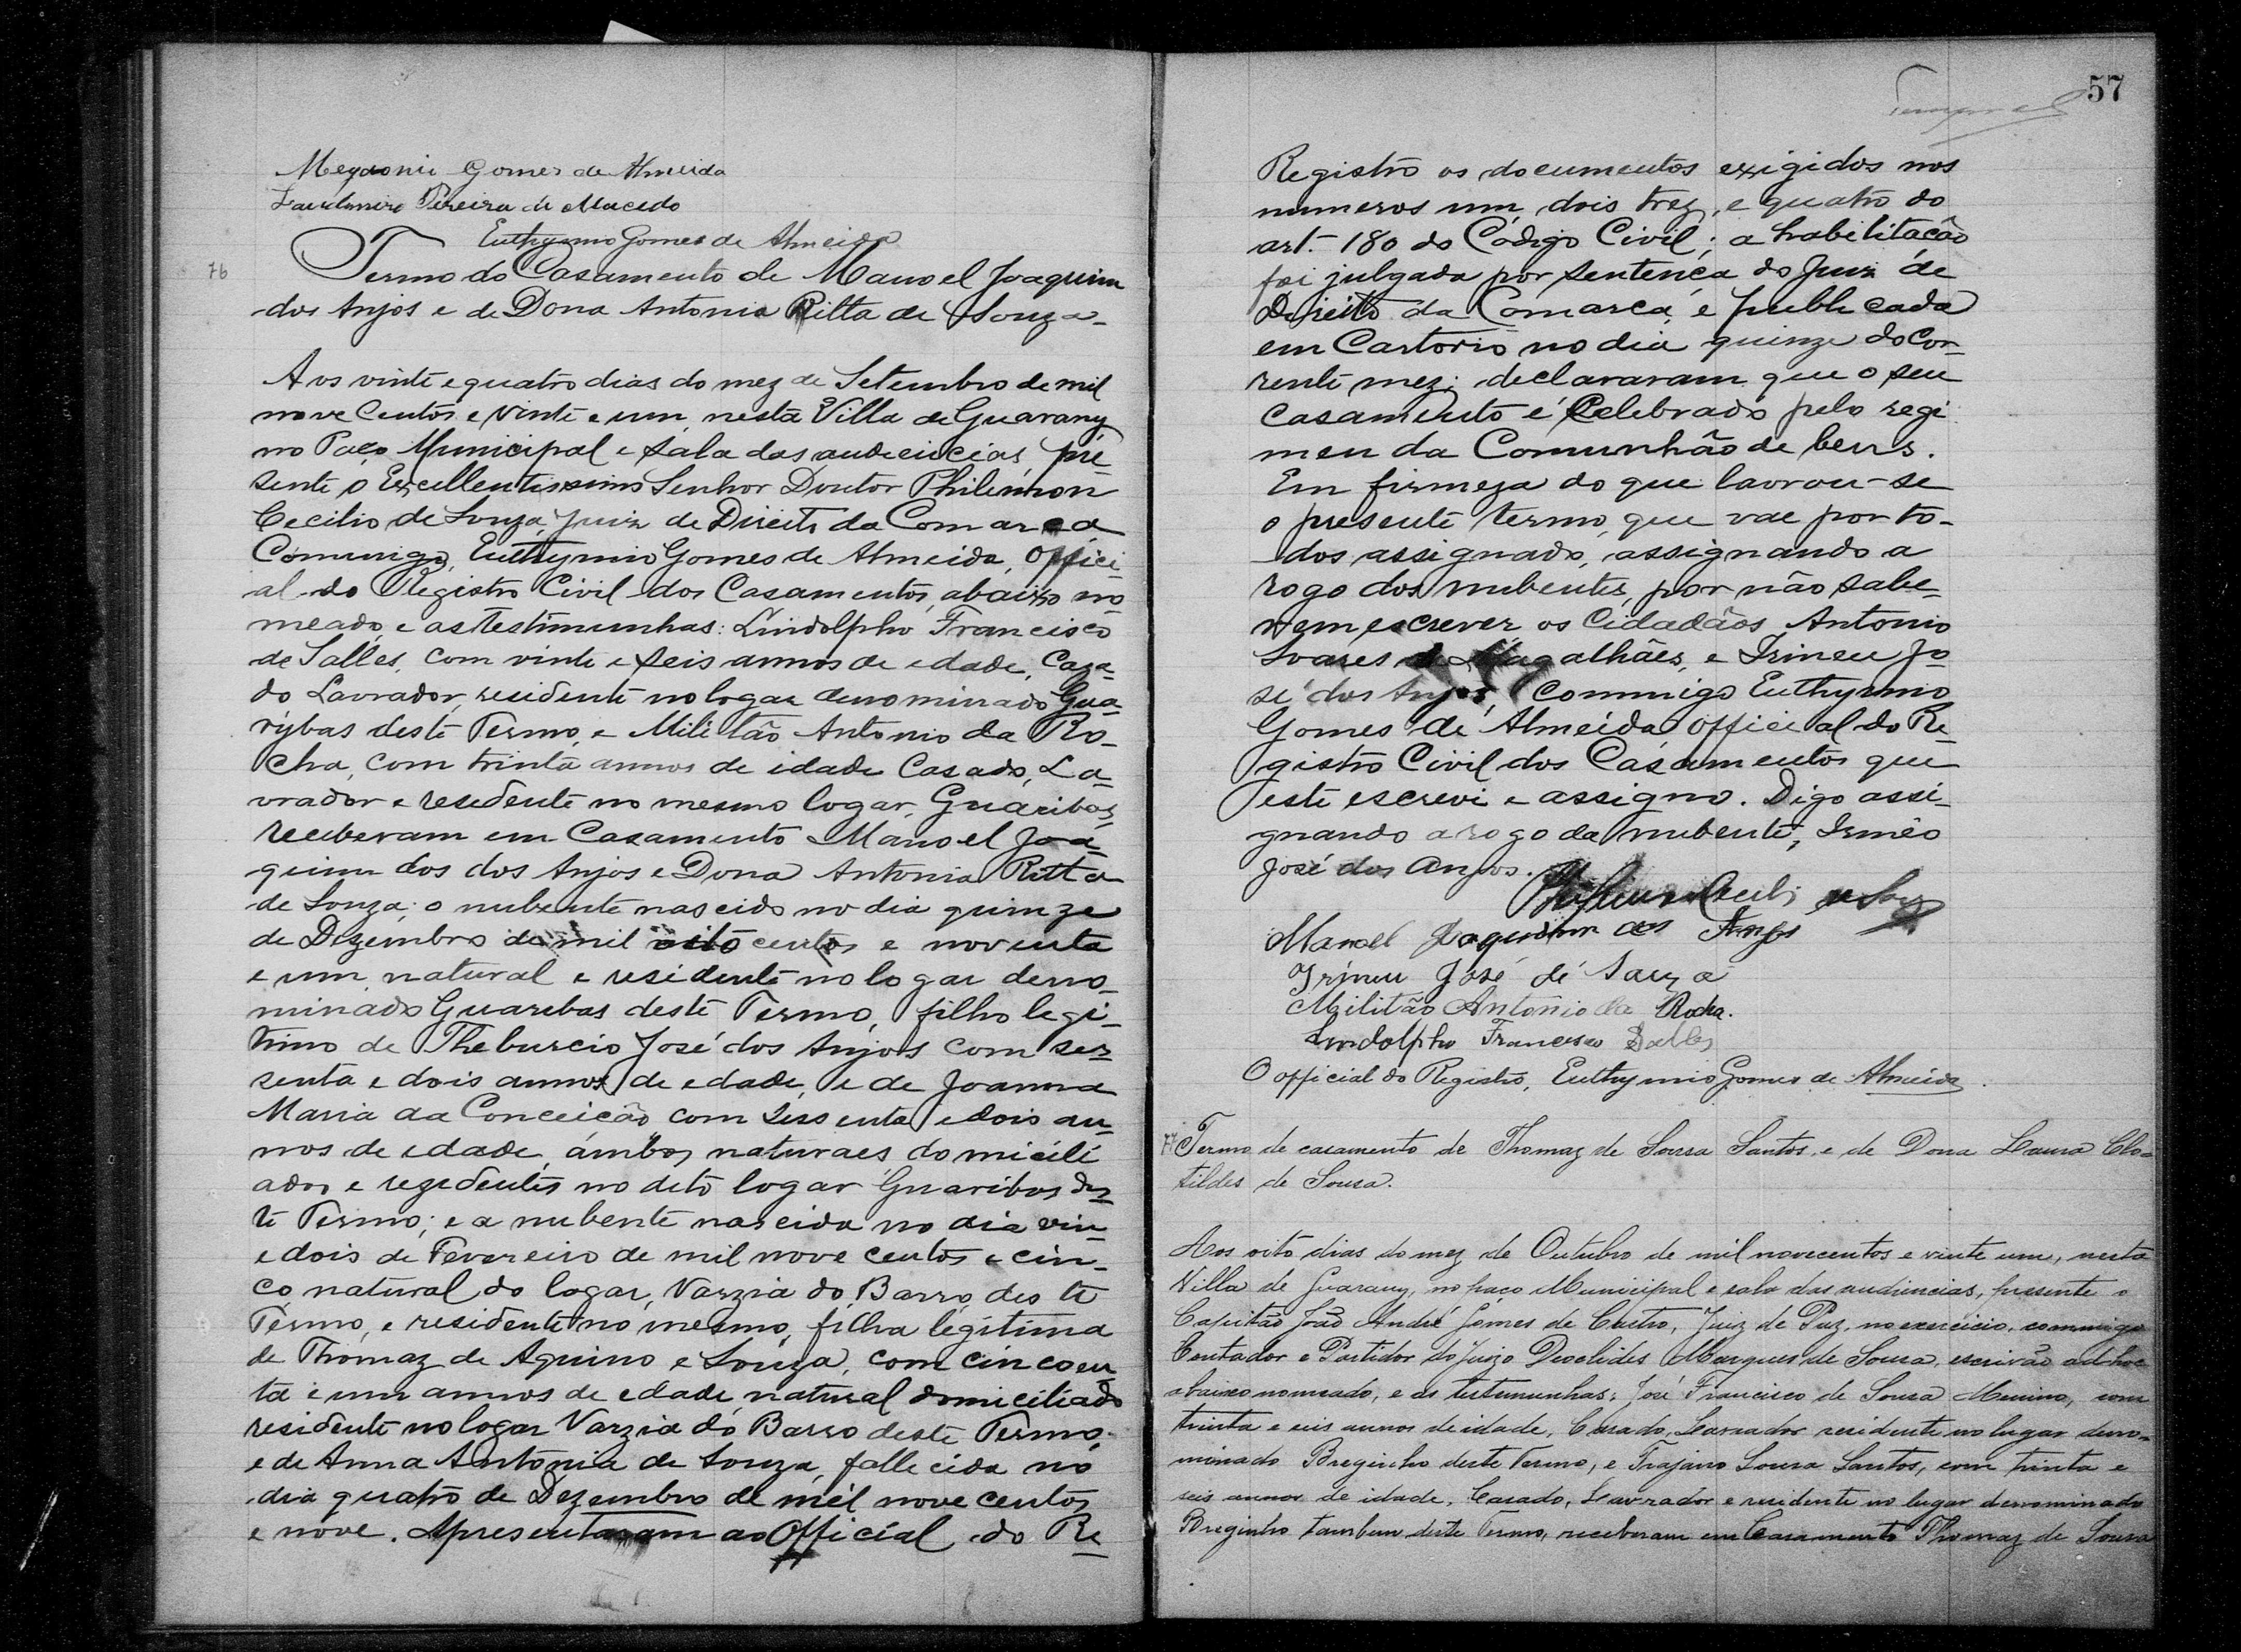 Gomes de Almeida
Pereira de Macedo
Euthymio Gomes de Almeida
76
Termo do Casamento de Manoel Joaquim
dos Anjos e de Dona Antonia Ritta de Souza-
Aos vinte e quatro dias do mez de Setembro de mil
nove centos e vinte e um, nesta Villa de Guarany
no Paço Municipal e sala das audiencias, pre-
sente o Excellentissimo Senhor Doutor Philemon
Cecilio de Souza, Juiz de Direito da Comarca
Commigo, Euthymio Gomes de Almeida, Offici-
al do Registro Civil dos Casamentos, abaixo no-
meado, e as testimunhas: Lindolpho Francisco
de Salles, com vinte e seis annos de edade, Casa-
do Lavrador, residente no logar denominado Gua-
rybas deste Termo, e Militão Antonio da Ro-
cha, com trinta annos de idade Casado, La-
vrador e residente no mesmo logar, Guaribas,
receberam em Casamento Manoel Joa-
quim dos dos Anjos e Dona Antonia Ritta
de Souza; o nubente nascido no dia quinze
de Dezembro de mil oito centos e noventa
e um, natural e residente no logar deno-
minado Guaribas deste Termo, filho legi-
timo de Theburcio José dos Anjos com ses-
senta e dois annos de edade, e de Joanna
Maria da Conceição, com sessenta e dois an-
nos de edade, ambos naturaes domicili
ados e rezidentes no dito logar Guaribas des-
te Termo; e a nubente nascida no dia vin-
e dois de Fevereiro de mil nove centos e cin-
co natural do logar, Varzia do Barro, des te
Termo, e residente no mesmo, filha legitima
de Thomaz de Aquino e Souza, com cincoen
ta e um annos de edade, natural domiciliado
residente no logar Varzia do Barro deste Termo,
e de Anna Antonia de Souza, fallecida no
dia quatro de Dezembro de mil nove centos
e nove. Apresentaram ao Official do Re-
57
Registro os documentos exigidos nos
numeros um, dois trez, e quatro do
art.- 180 do Codigo Civil; a habilitação
foi julgada por sentença do Juiz de
Direito da Comarca, e publicada
em Cartorio no dia quinze do cor-
rente mez; declararam que o seu
casamento é Celebrado pelo regi
men da Comunhão de bens.
Em firmeza do que lavrou-se
o presente termo, que vae por to-
dos assignado, assignando a
rogo dos nubentes, por não sabe-
rem escrever os Cidadãos Antonio
Soares de Magalhães, e Irineu Jo-
sé dos Anjos, Commigo Euthymio
Gomes de Almeida official do Re-
gistro Civil dos Casamentos que
este escrevi e assigno. Digo assi-
gnando a rogo da nubente, Irinêo
José dos Anjos.
Manoel Joaquim dos Anjos
Irineu José de Sauza
Militão Antonio da Rocha.
Lindolpho Francisco Salles
O official do Registro, Euthymio Gomes de Almeida.
77 Termo de casamento de Thomaz de Sousa Santos e de Dona Laura Clo-
tildes de Sousa.
Aos oito dias do mez de Outubro de mil novecentos e vinte um, nesta
Villa de Guarany, no paço Municipal e sala das audiencias, presente o
Capitão João André Gomes de Castro, Juiz de Paz, no exercicio, commigo
Contador e Partidor do Juizo Deoclides Marques de Sousa, escrivão ad-hoc
abaixo nomeado, e as testemunhas: José Francisco de Sousa Menino, com
trinta e seis annos de idade, Casado, Lavrador residente no lugar deno-
minado Breginho deste Termo, e Trajano Sousa Santos, com trinta e
seis annos de idade, Casado, Lavrador e residente no lugar denominado
Breginho tambem deste Termo, receberam em Casamento Thomaz de Sousa